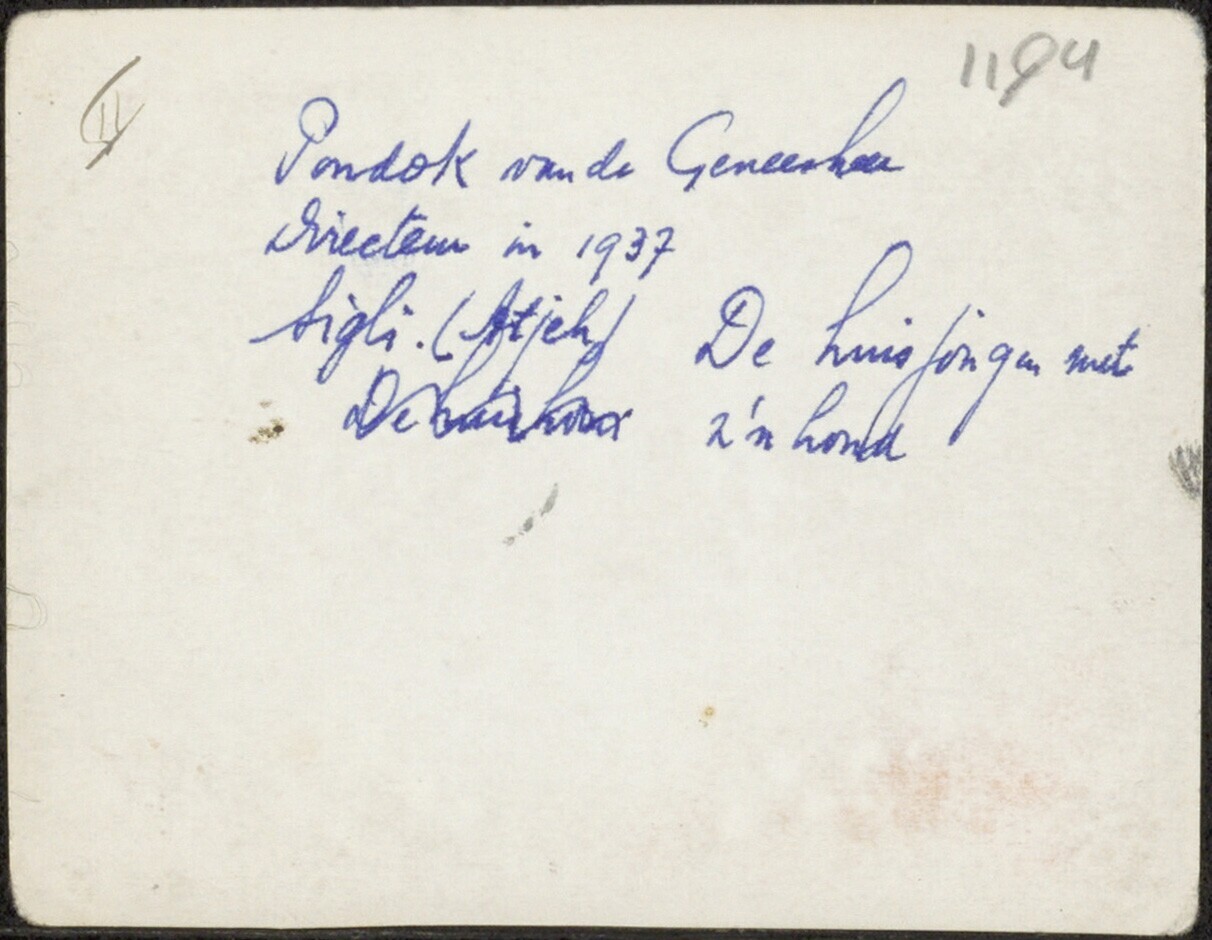 1194
Pondok van de Geneesheer
Directeur in 1937
Sigli. (Atjeh)
De huisjongen met
z'n hond